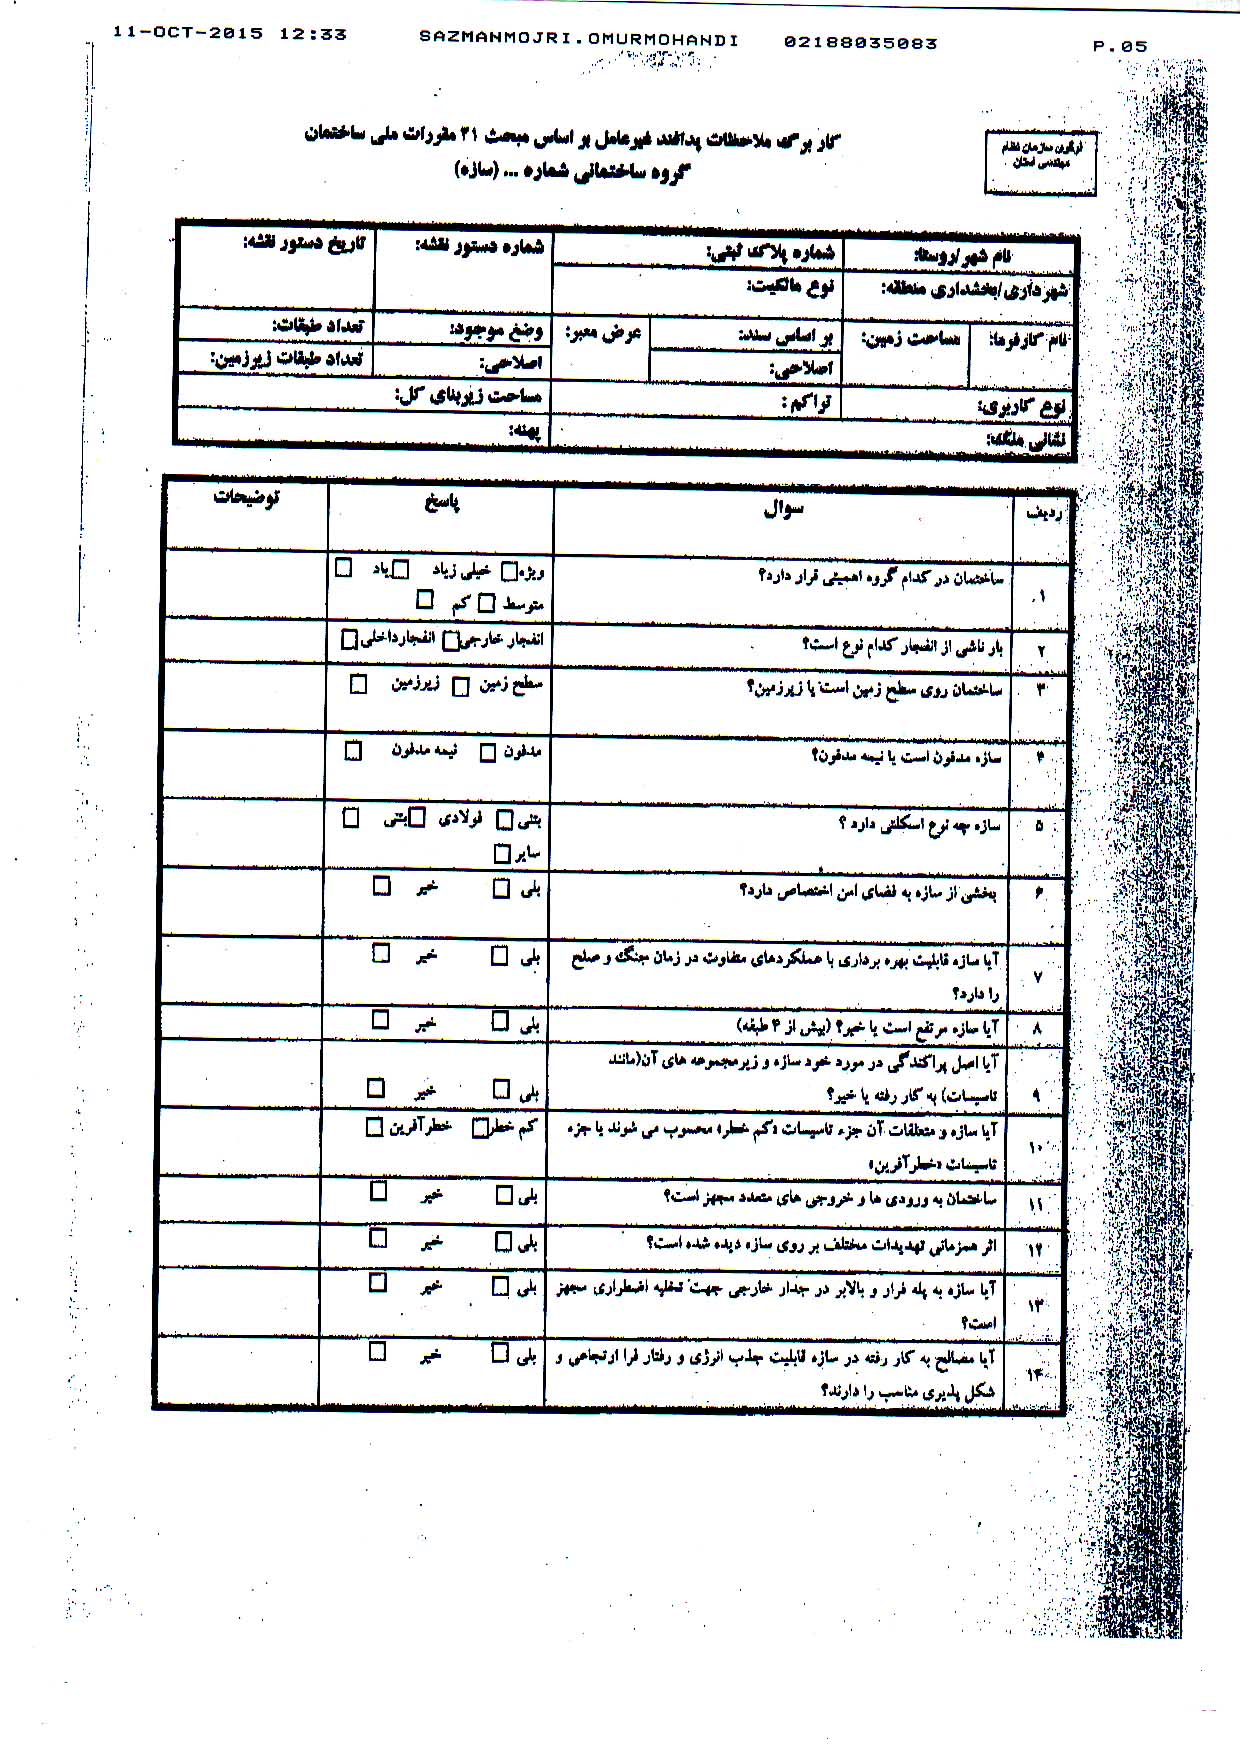 11-OCT-2015 12:33 SAZMANMOJRI.OMURMOHANDI 02188035083 P.05
کار برگ ملاحظات پدافند غیرعامل بر اساس مبحث ۲۱ مقررات ملی ساختمان
گروه ساختمانی شماره ... (سازه)
سازمان نظام
مهندسی استان
نام شهر/روستا: شماره پلاک ثبتی: شماره دستور نقشه: تاریخ دستور نقشه:
شهرداری/بخشداری منطقه: نوع مالکیت:
نام کارفرما: مساحت زمین: بر اساس سند: عرض معبر: وضع موجود: تعداد طبقات:
اصلاحی: اصلاحی: تعداد طبقات زیرزمین:
نوع کاربری: تراکم: مساحت زیربنای کل:
نشانی ملک: پهنه:
ردیف سوال پاسخ توضیحات
۱. ساختمان در کدام گروه اهمیتی قرار دارد؟ ویژه □ خیلی زیاد □ یاد □
متوسط □ کم □
۲ بار ناشی از انفجار کدام نوع است؟ انفجار خارجی □ انفجارداخلی □
۳ ساختمان روی سطح زمین است یا زیرزمین؟ سطح زمین □ زیرزمین □
۴ سازه مدفون است یا نیمه مدفون؟ مدفون □ نیمه مدفون □
۵ سازه چه نوع اسکلتی دارد ؟ بتنی □ فولادی □ بتنی □
سایر □
۶ بخشی از سازه به فضای امن اختصاص دارد؟ بلی □ خیر □
۷ آیا سازه قابلیت بهره برداری با عملکردهای متفاوت در زمان جنگ و صلح بلی □ خیر □
را دارد؟
۸ آیا سازه مرتفع است یا خیر؟ (بیش از ۴ طبقه) بلی □ خیر □
آیا اصل پراکندگی در مورد خود سازه و زیرمجموعه های آن(مانند
۹ تاسیسات) به کار رفته یا خیر؟ بلی □ خیر □
۱۰ آیا سازه و متعلقات آن جزء تاسیسات «کم خطر» محسوب می شوند یا جزء کم خطر □ خطرآفرین □
تاسیسات «خطرآفرین»
۱۱ ساختمان به ورودی ها و خروجی های متعدد مجهز است؟ بلی □ خیر □
۱۲ اثر همزمانی تهدیدات مختلف بر روی سازه دیده شده است؟ بلی □ خیر □
۱۳ آیا سازه به پله فرار و بالابر در جدار خارجی جهت تخلیه اضطراری مجهز بلی □ خیر □
است؟
۱۴ آیا مصالح به کار رفته در سازه قابلیت جذب انرژی و رفتار فرا ارتجاعی و بلی □ خیر □
شکل پذیری مناسب را دارند؟